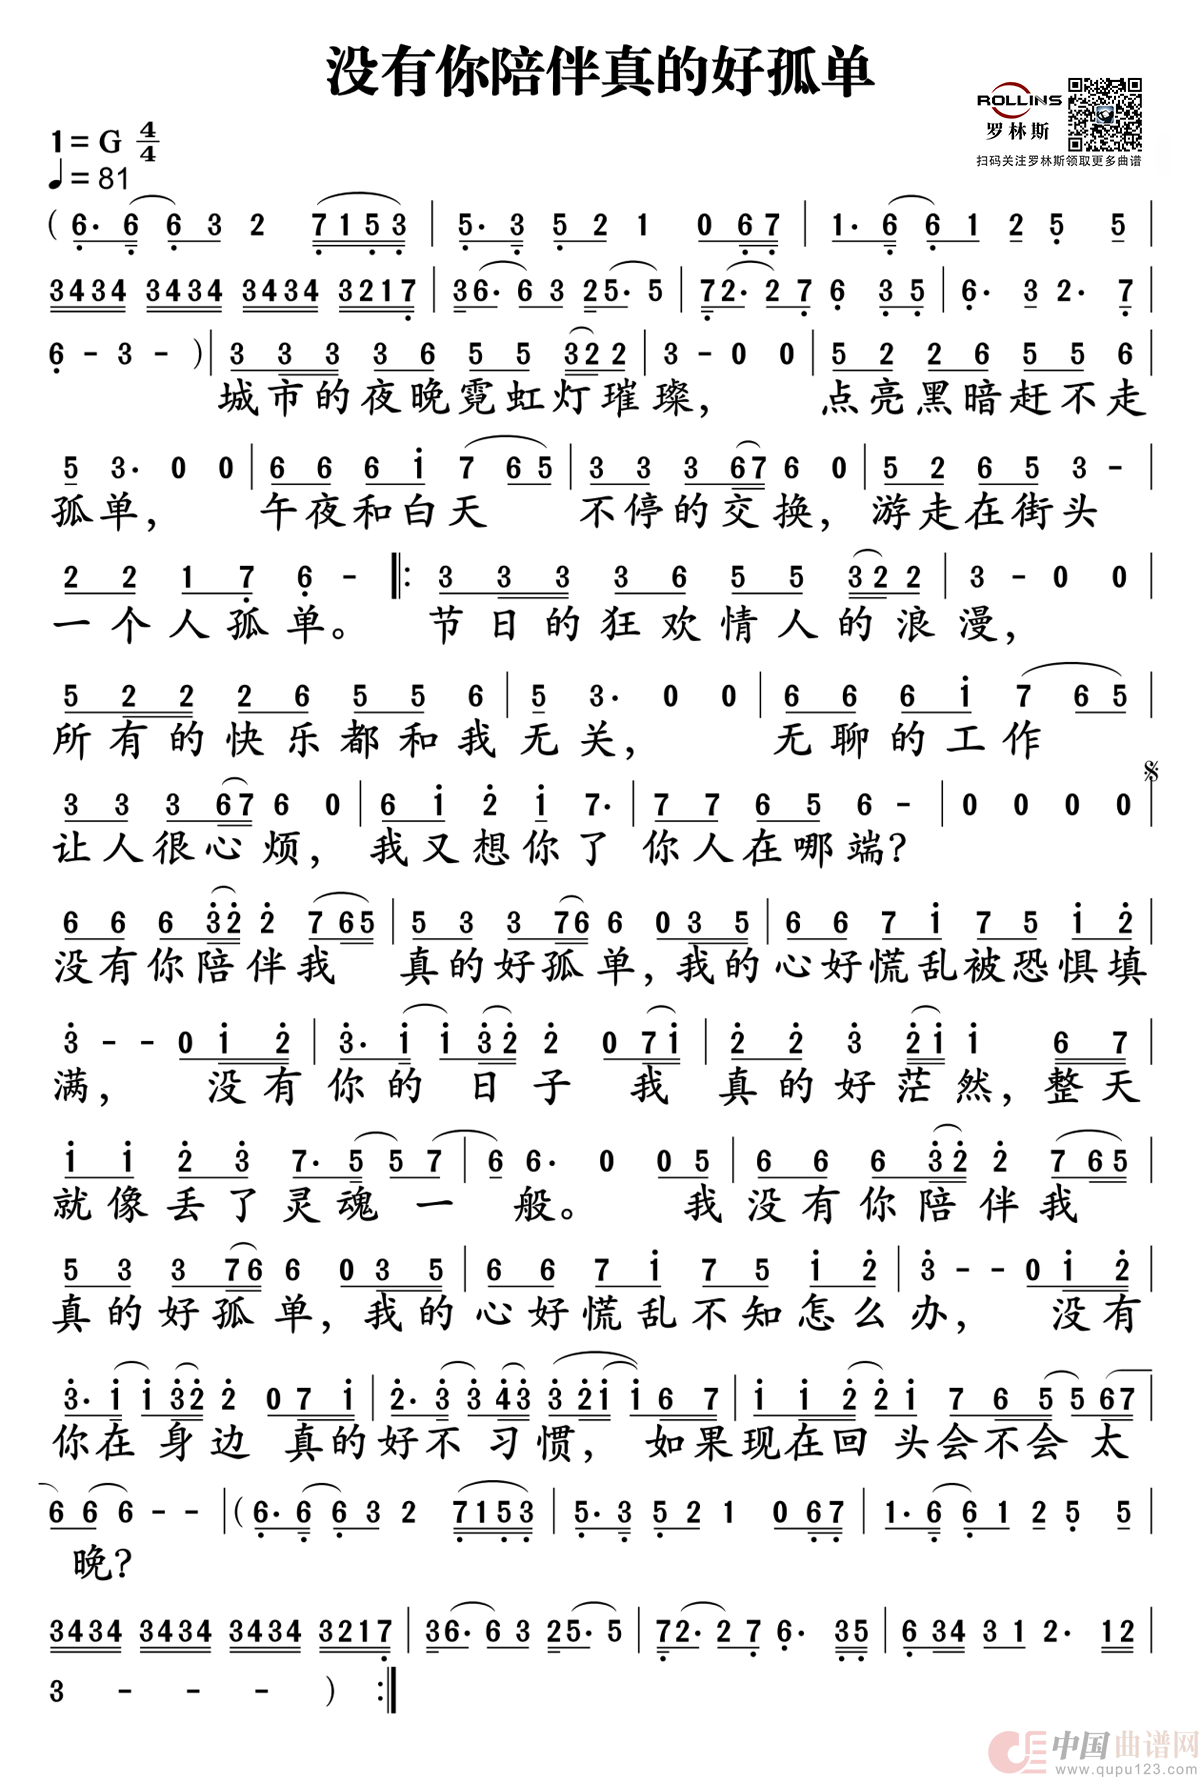 没有你陪伴真的好孤单
ROLLINS
罗林斯
扫码关注罗林斯领取更多曲谱
1=G 4/4
♩=81
( 6· 6 6 3 2 7 1 5 3 | 5· 3 5 2 1 0 6 7 | 1· 6 6 1 2 5 5 |
3434 3434 3434 3217 | 36· 6 3 25· 5 | 72· 2 7 6 3 5 | 6· 3 2· 7 |
6 - 3 - ) | 3 3 3 3 6 5 5 32 2 | 3 - 0 0 | 5 2 2 6 5 5 6
城市的夜晚霓虹灯璀璨, 点亮黑暗赶不走
5 3· 0 0 | 6 6 6 i 7 6 5 | 3 3 3 67 6 0 | 5 2 6 5 3 - |
孤单, 午夜和白天 不停的交换, 游走在街头
2 2 1 7 6 - ‖: 3 3 3 3 6 5 5 32 2 | 3 - 0 0 |
一个人孤单。 节日的狂欢情人的浪漫,
5 2 2 2 6 5 5 6 | 5 3· 0 0 | 6 6 6 i 7 6 5 |
所有的快乐都和我无关, 无聊的工作
3 3 3 67 6 0 | 6 i 2 i 7· | 7 7 6 5 6 - | 0 0 0 0 |
让人很心烦, 我又想你了 你人在哪端?
6 6 6 32 2 7 65 | 5 3 3 76 6 0 3 5 | 6 6 7 i 7 5 i 2 |
没有你陪伴我 真的好孤单, 我的心好慌乱被恐惧填
3 - - 0 i 2 | 3· i i 32 2 0 7i | 2 2 3 2i i 6 7 |
满, 没有你的日子 我 真的好茫然, 整天
i i 2 3 7· 5 5 7 | 6 6· 0 0 5 | 6 6 6 32 2 7 65 |
就像丢了灵魂一般。 我没有你陪伴我
5 3 3 76 6 0 3 5 | 6 6 7 i 7 5 i 2 | 3 - - 0 i 2 |
真的好孤单, 我的心好慌乱不知怎么办, 没有
3· i i 32 2 0 7 i | 2· 3 3 43 3 2i i 6 7 | i i 2 2 i 7 6 5 5 67 |
你在身边 真的好不习惯, 如果现在回头会不会太
6 6 6 - - | ( 6· 6 6 3 2 7 1 5 3 | 5· 3 5 2 1 0 6 7 | 1· 6 6 1 2 5 5 |
晚?
3434 3434 3434 3217 | 36· 6 3 25· 5 | 72· 2 7 6· 35 | 6 34 3 1 2· 12 |
3 - - - ) :‖
中国曲谱网
www.qupu123.com